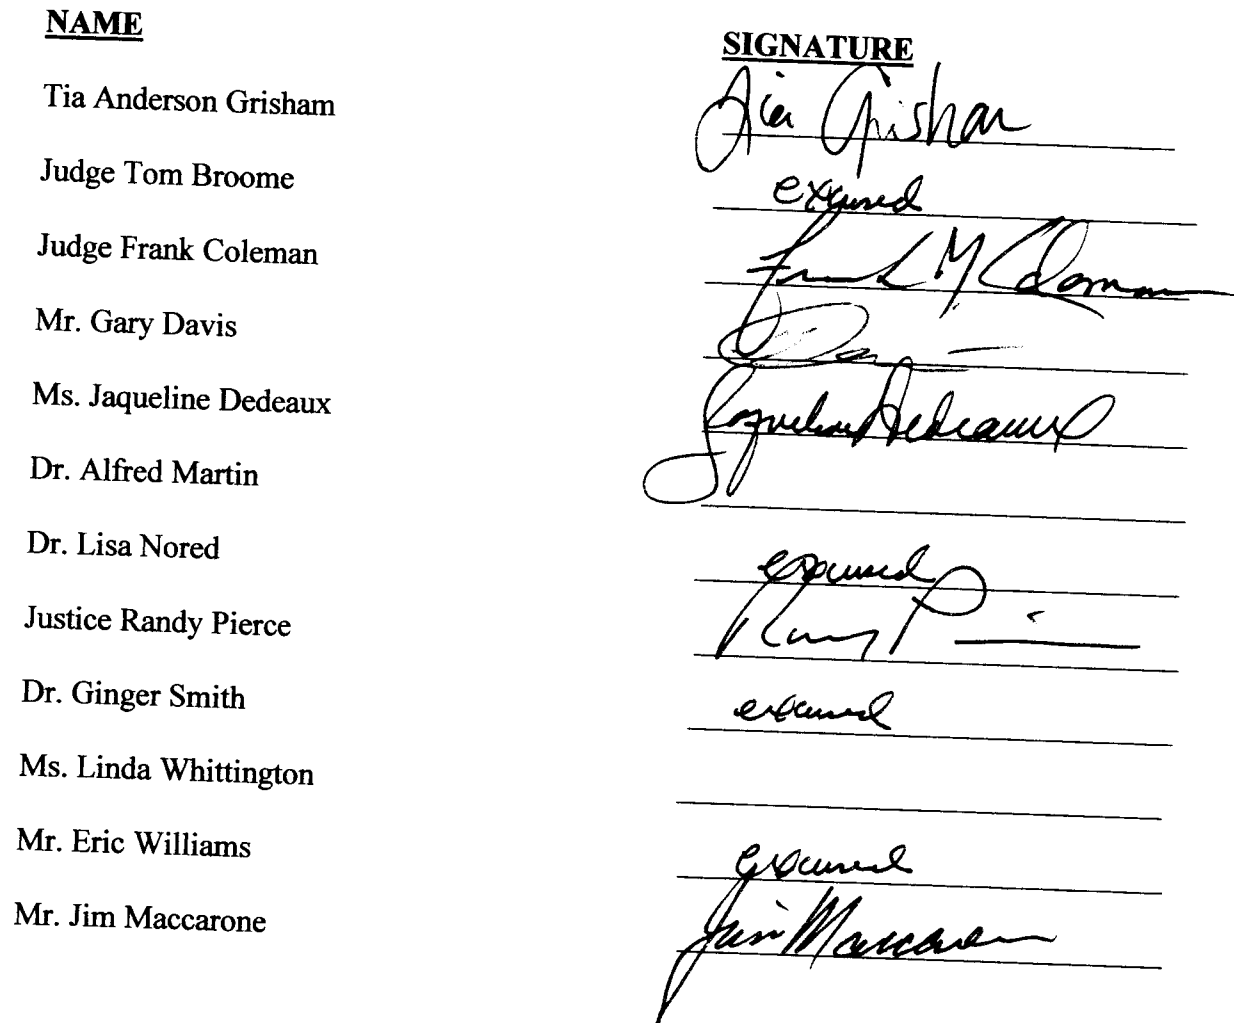 NAME SIGNATURE
Tia Anderson Grisham Tia Grisham
Judge Tom Broome excused
Judge Frank Coleman Frank M Coleman
Mr. Gary Davis
Ms. Jaqueline Dedeaux Jaqueline Dedeaux
Dr. Alfred Martin
Dr. Lisa Nored excused
Justice Randy Pierce Randy P
Dr. Ginger Smith excused
Ms. Linda Whittington
Mr. Eric Williams excused
Mr. Jim Maccarone Jim Maccarone